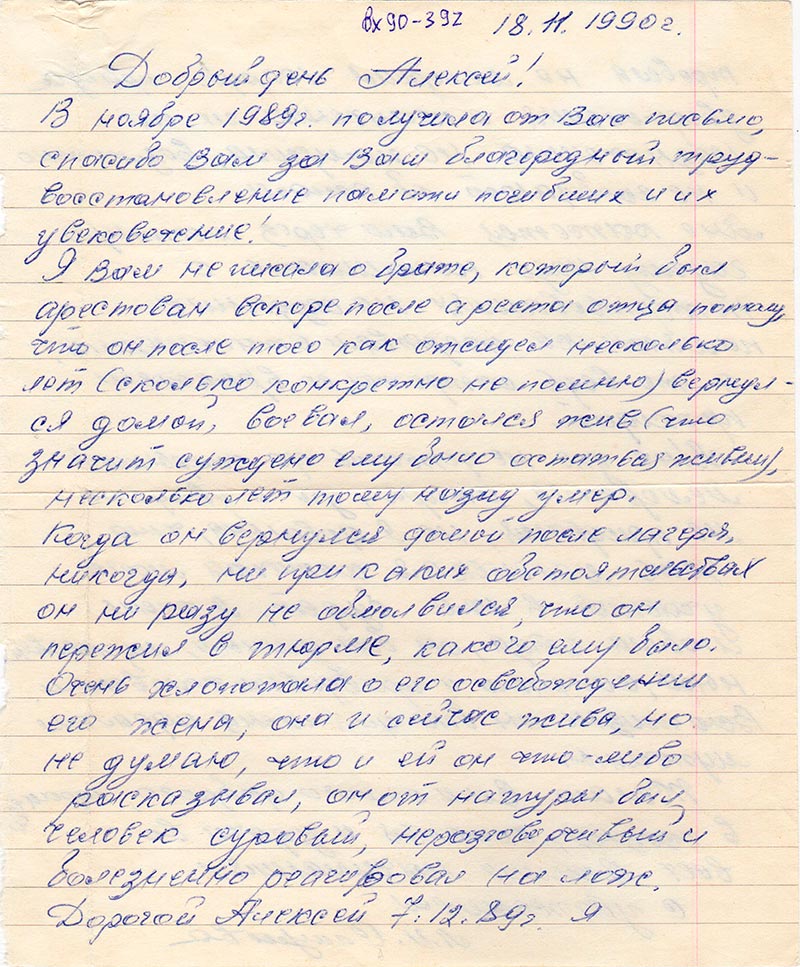 Вх 90-392 18.11.1990г.
Добрый день Алексей!
В ноябре 1989г. получила от Вас письмо,
спасибо Вам за Ваш благородный труд-
восстановление памяти погибших и их
увековечение!
Я Вам не писала о брате, который был
арестован вскоре после ареста отца потому,
что он после того как отсидел несколько
лет (сколько конкретно не помню) вернул-
ся домой, воевал, остался жив (что
значит суждено ему было остаться живым),
несколько лет тому назад умер.
Когда он вернулся домой после лагеря,
никогда, ни при каких обстоятельствах
он ни разу не обмолвился, что он
пережил в тюрме, какого ему было.
Очень хлопотала о его освобождении
его жена, она и сейчас жива, но
не думаю, что и ей он что-либо
расказывал, он от натуры был
человек суровый, неразговорчивый и
болезненно реагировал на лож.
Дорогой Алексей 7.12.89г. Я